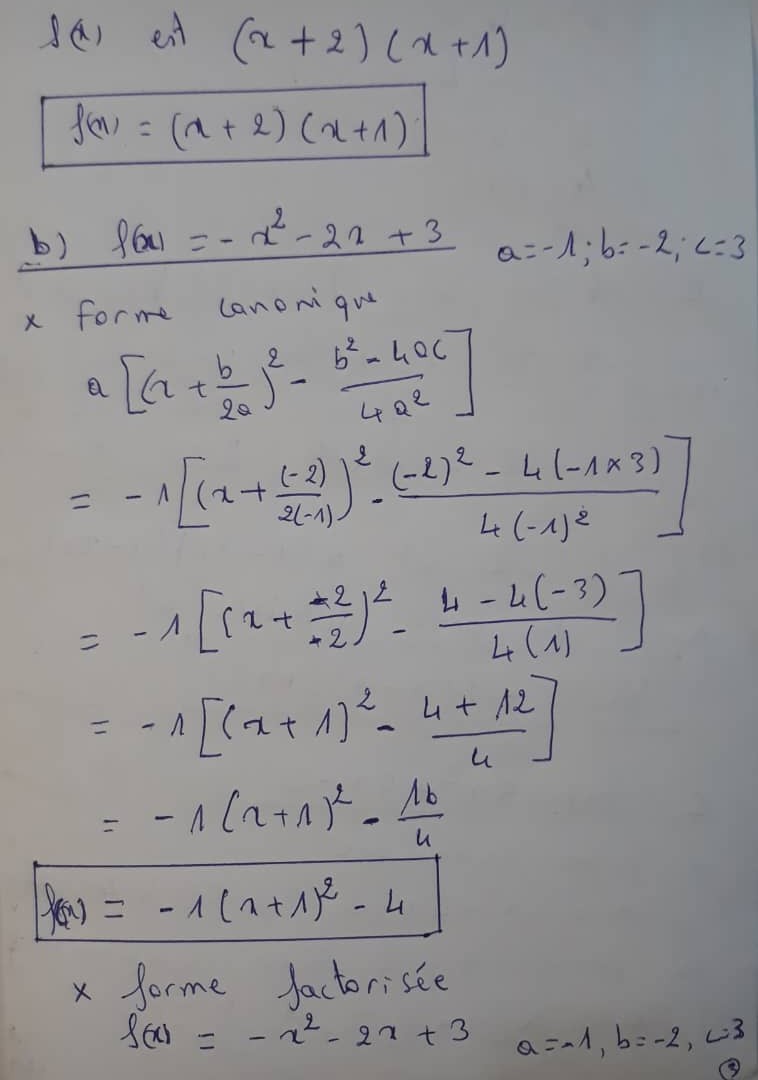 f(x) est (x + 2) (x + 1)
f(x) = (x + 2) (x + 1)
b) f(x) = - x² - 2x + 3 a = -1 ; b = -2 ; c = 3
x forme canonique
a [(x + b/2a)² - (b² - 4ac)/(4a²)]
= - 1 [(x + (-2)/2(-1))² - ((-2)² - 4(-1 × 3))/(4(-1)²)]
= - 1 [(x + -2/-2)² - (4 - 4(-3))/(4(1))]
= - 1 [(x + 1)² - (4 + 12)/4]
= - 1 (x + 1)² - 16/4
f(x) = - 1 (x + 1)² - 4
x forme factorisée
f(x) = - x² - 2x + 3 a = -1, b = -2, c = 3
③